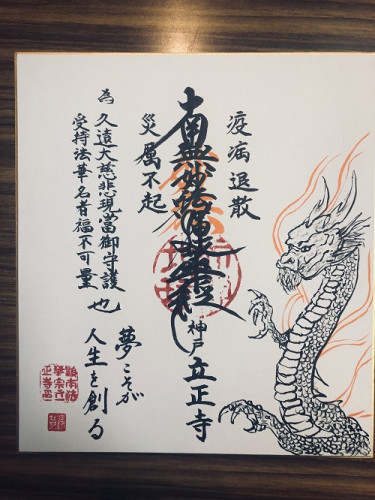 疫病退散
南無妙法蓮華経
神戸 立正寺
災厲不起
為 久遠大慈悲現當御守護
受持法華名者福不可量 也
夢こそが
人生を創る